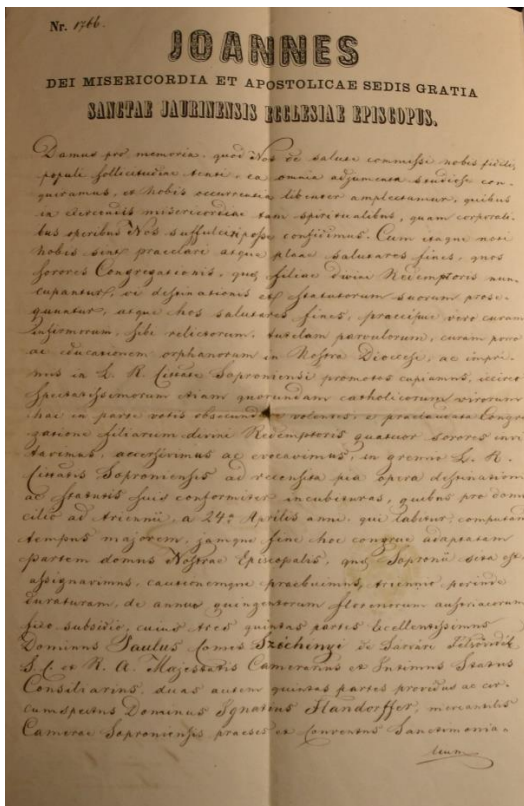 Nr. 1766.
JOANNES
DEI MISERICORDIA ET APOSTOLICAE SEDIS GRATIA
SANCTAE JAURINENSIS ECCLESIAE EPISCOPUS.
Damus pro memoria, quod Nos de salute commissi nobis fidelis
populi sollicitudine tenti, ea omnia adjumenta studiose con-
quiramus, et nobis occurrentia libenter amplectamur, quibus
in exercendis misericordiae tam spiritualibus, quam corporali-
bus operibus Nos suffulciri posse confidimus. Cum itaque noti
nobis sint praeclari atque plane salutares fines, quos
sorores Congregationis, quae filiae divini Redemptoris nun-
cupantur, vi destinationis et statutorum suorum prose-
quuntur, atque hos salutares fines, praecipue vero curam
infirmorum, sibi relictorum, tutelam parvulorum, curam porro
ac educationem orphanorum in Nostra Dioecesi, ac impri-
mis in L. R. Civitate Soproniensi promotos cupiamus, idcirco
spectatissimorum etiam quorundam catholicorum virorum
hac in parte votis obsecundare volentes, e praelaudata Congre-
gatione filiarum divini Redemptoris quatuor sorores invi-
tavimus, accersivimus ac evocavimus, in gremio L. R.
Civitatis Soproniensis ad recensita pia opera destinationi
ac statutis suis conformiter incubituras, quibus pro domi-
cilio ad triennii, a 24a Aprilis anni, qui labitur, computandi
tempus majorem, jamque fine hoc congrue adaptatam
partem domus Nostrae Episcopalis, quae Sopronii sita est,
assignavimus, cautionemque praebuimus, triennio perinde
duraturam, de annuo quingentorum florenorum austriacorum
subsidio, cuius tres quintas partes Excellentissimus
Dominus Paulus Comes Széchenyi de Sárvári Felsővidék
S. C. et R. A. Majestatis Camerarius et Intimus Status
Consiliarius, duas autem quintas partes providus ac cir-
cumspectus Dominus Ignatius Flandorffer, mercantilis
Camerae Soproniensis praeses et Conventus Sanctimonia-
lium